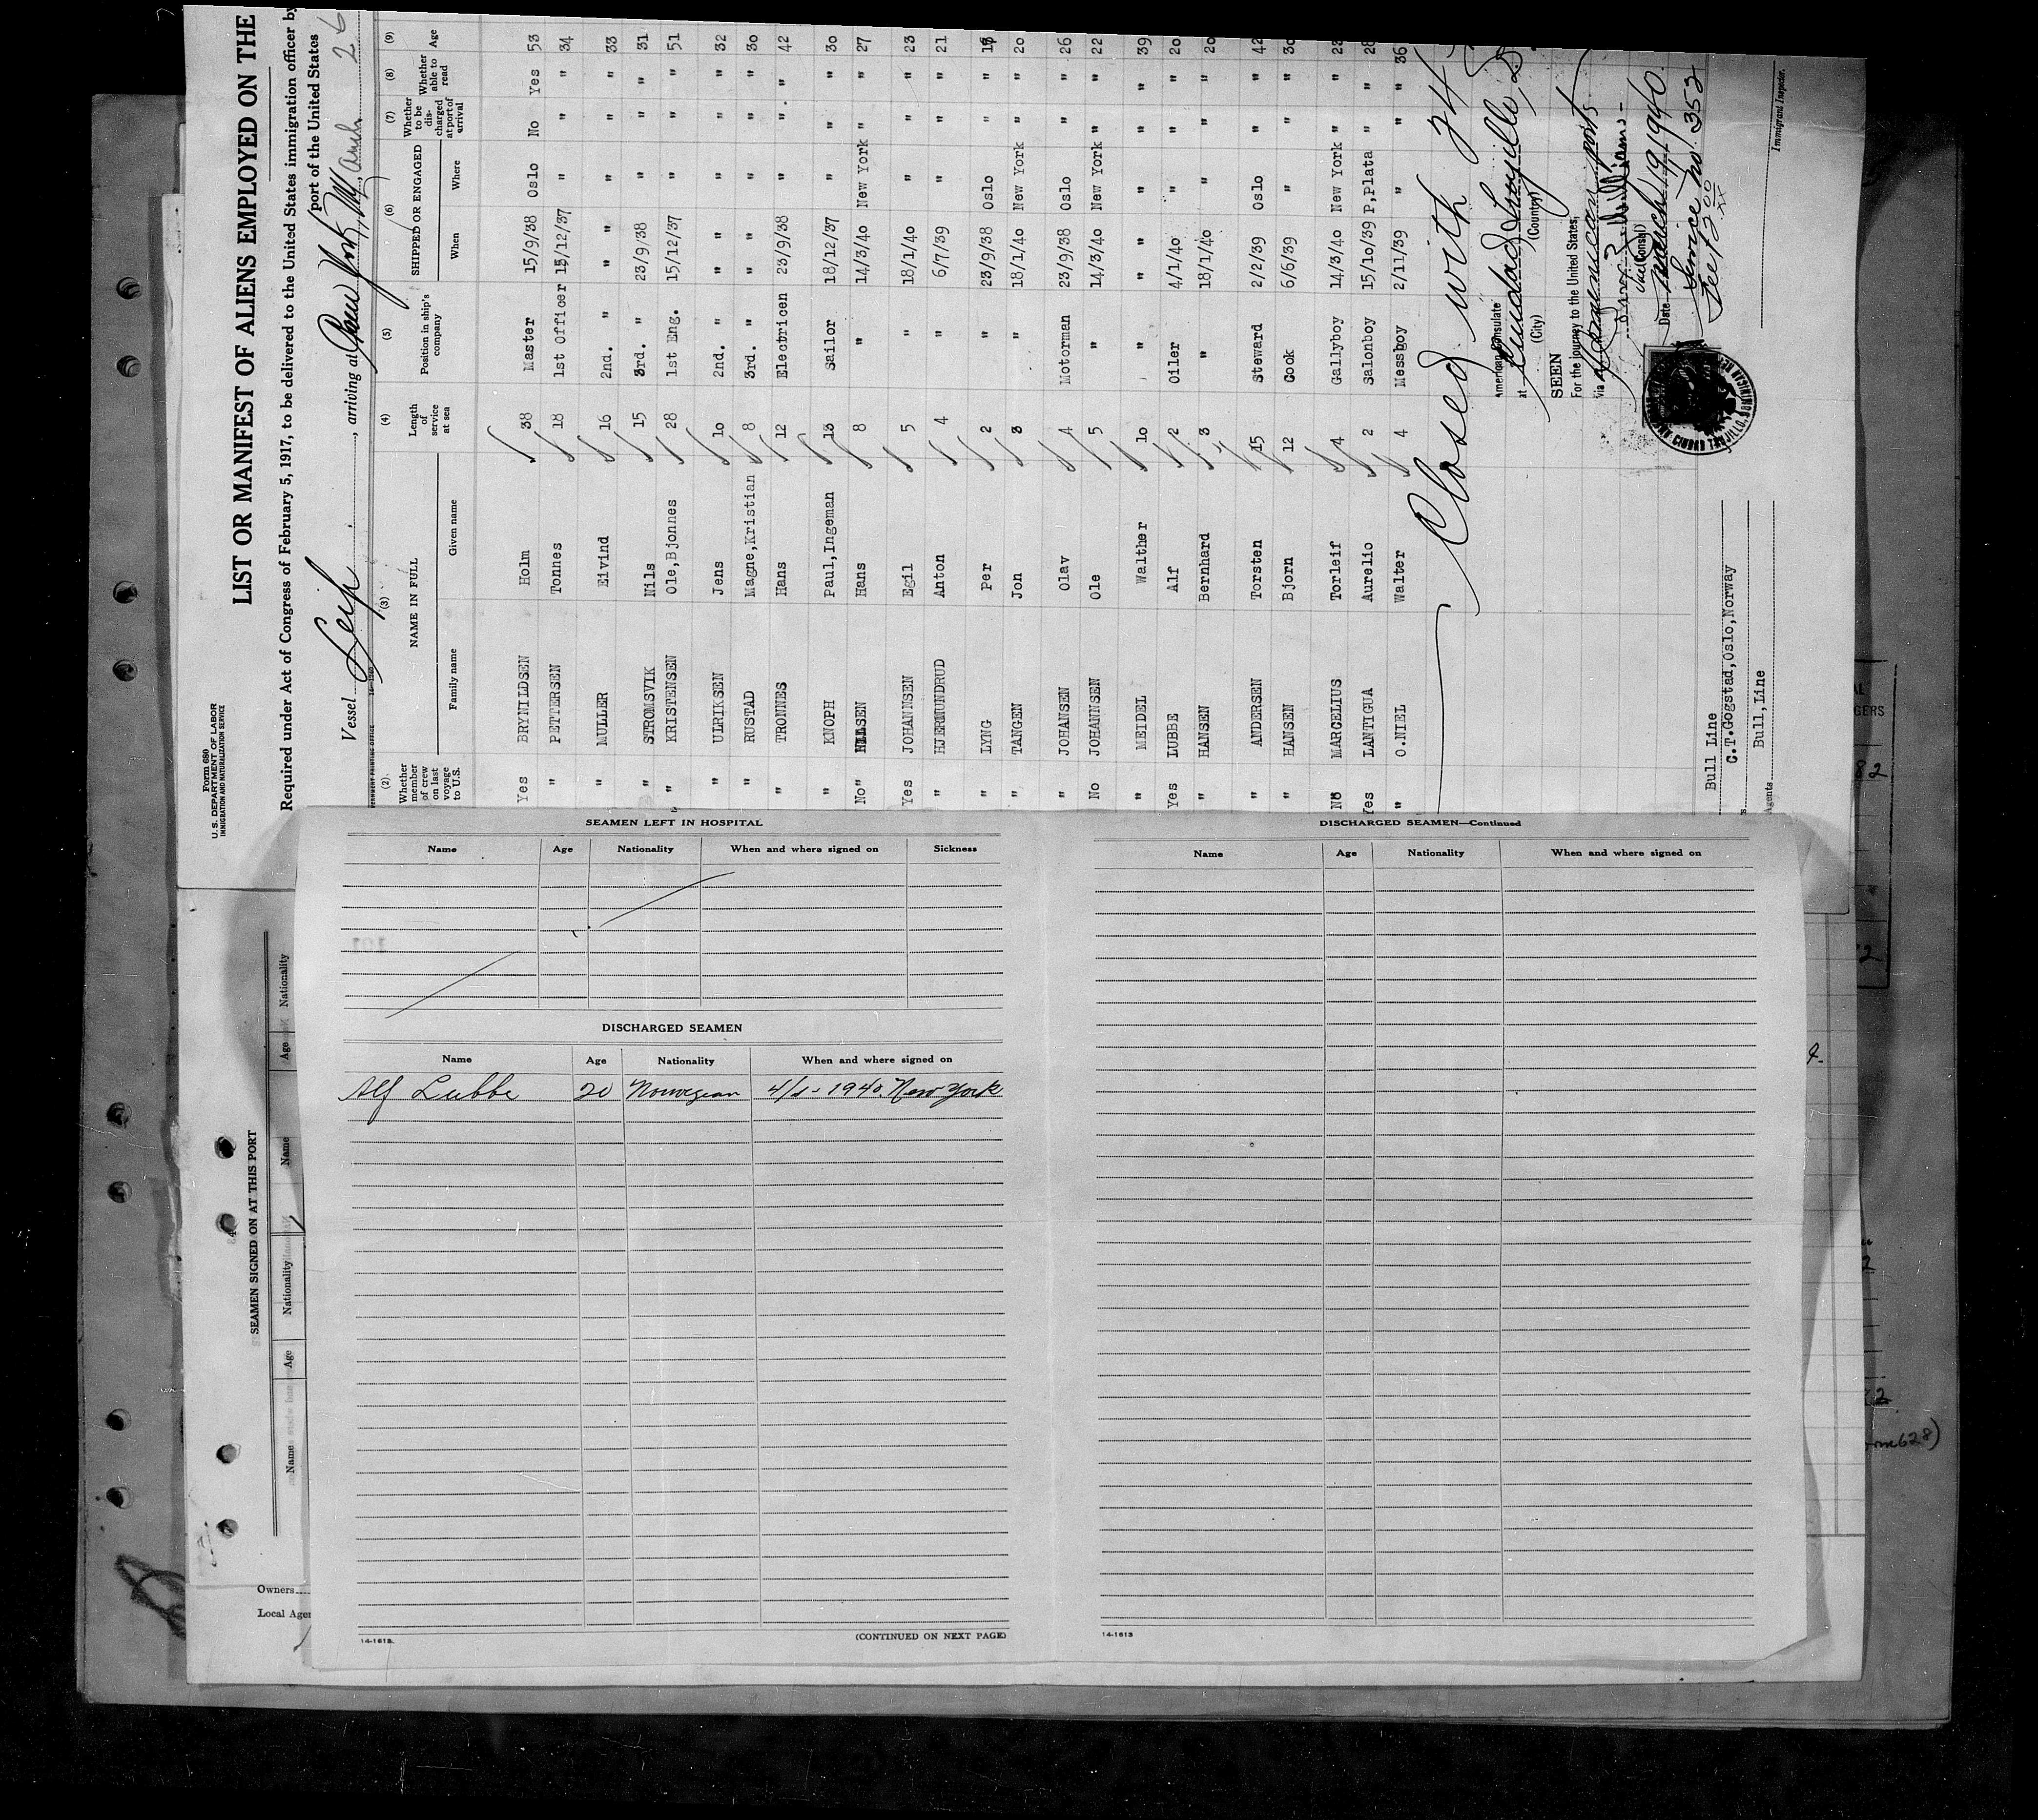 Form 680
U. S. DEPARTMENT OF LABOR
IMMIGRATION AND NATURALIZATION SERVICE
LIST OR MANIFEST OF ALIENS EMPLOYED ON THE
Required under Act of Congress of February 5, 1917, to be delivered to the United States immigration officer by
port of the United States
Vessel Leif, arriving at New York, NY, March 26
(2) (3) (4) (5) (6) (7) (8) (9)
Whether member of crew on last voyage to U.S. NAME IN FULL Length of service at sea Position in ship's company SHIPPED OR ENGAGED Whether to be discharged at port of arrival Whether able to read Age
Family name Given name When Where
Yes BRYNILDSEN Holm 38 Master 15/9/38 Oslo No Yes 53
" PETTERSEN Tonnes 18 1st Officer 15/12/37 " " " 34
" MULLER Eivind 16 2nd. " " " " " 33
" STROMSVIK Nils 15 3rd. " 23/9/38 " " " 31
" KRISTENSEN Ole,Bjonnes 28 1st Eng. 15/12/37 " " " 51
" ULRIKSEN Jens 10 2nd. " " " " " 32
" RUSTAD Magne,Kristian 8 3rd. " " " " " 30
" TRONNES Hans 12 Electricen 23/9/38 " " " 42
" KNOPH Paul,Ingeman 13 Sailor 18/12/37 " " " 30
No" Hans 8 " 14/3/40 New York " " 27
Yes JOHANNSEN Egil 5 " 18/1/40 " " " 23
" HJERMUNDRUD Anton 4 " 6/7/39 " " " 21
" LYNG Per 2 " 23/9/38 Oslo " "
" TANGEN Jon 3 " 18/1/40 New York " " 20
" JOHANSEN Olav 4 Motorman 23/9/38 Oslo " " 26
No JOHANNSEN Ole 5 " 14/3/40 New York " " 22
" MEIDEL Walther 10 " " " " " 39
Yes LUBBE Alf 2 Oiler 4/1/40 " " " 20
" HANSEN Bernhard 3 " 18/1/40 " " " 20
" ANDERSEN Torsten 15 Steward 2/2/39 Oslo " " 42
" HANSEN Bjorn 12 Cook 6/6/39 " " " 30
No MARCELIUS Torleif 4 Gallyboy 14/3/40 New York " " 23
Yes LANTIGUA Aurelio 2 Salonboy 15/10/39 P,Plata " " 28
" O.NIEL Walter 4 Messboy 2/11/39 " " " 36
Closed with 24
American Consulate
at Ciudad Trujillo, D
(City) (Country)
SEEN
For the journey to the United States,
Via American ports
Williams
Date March 19, 1940.
Service No. 352
Fee $2.00
Immigrant Inspector.
Bull Line
C.T.Gogstad,Oslo,Norway
Bull,Line
SEAMEN LEFT IN HOSPITAL
Name Age Nationality When and where signed on Sickness
DISCHARGED SEAMEN
Name Age Nationality When and where signed on
Alf Lubbe 20 Norwegian 4/1-1940. New York
14-1613
(CONTINUED ON NEXT PAGE)
DISCHARGED SEAMEN—Continued
Name Age Nationality When and where signed on
14-1613
SEAMEN SIGNED ON AT THIS PORT
Name Age Nationality Name Age Nationality
Owners
Local Agen